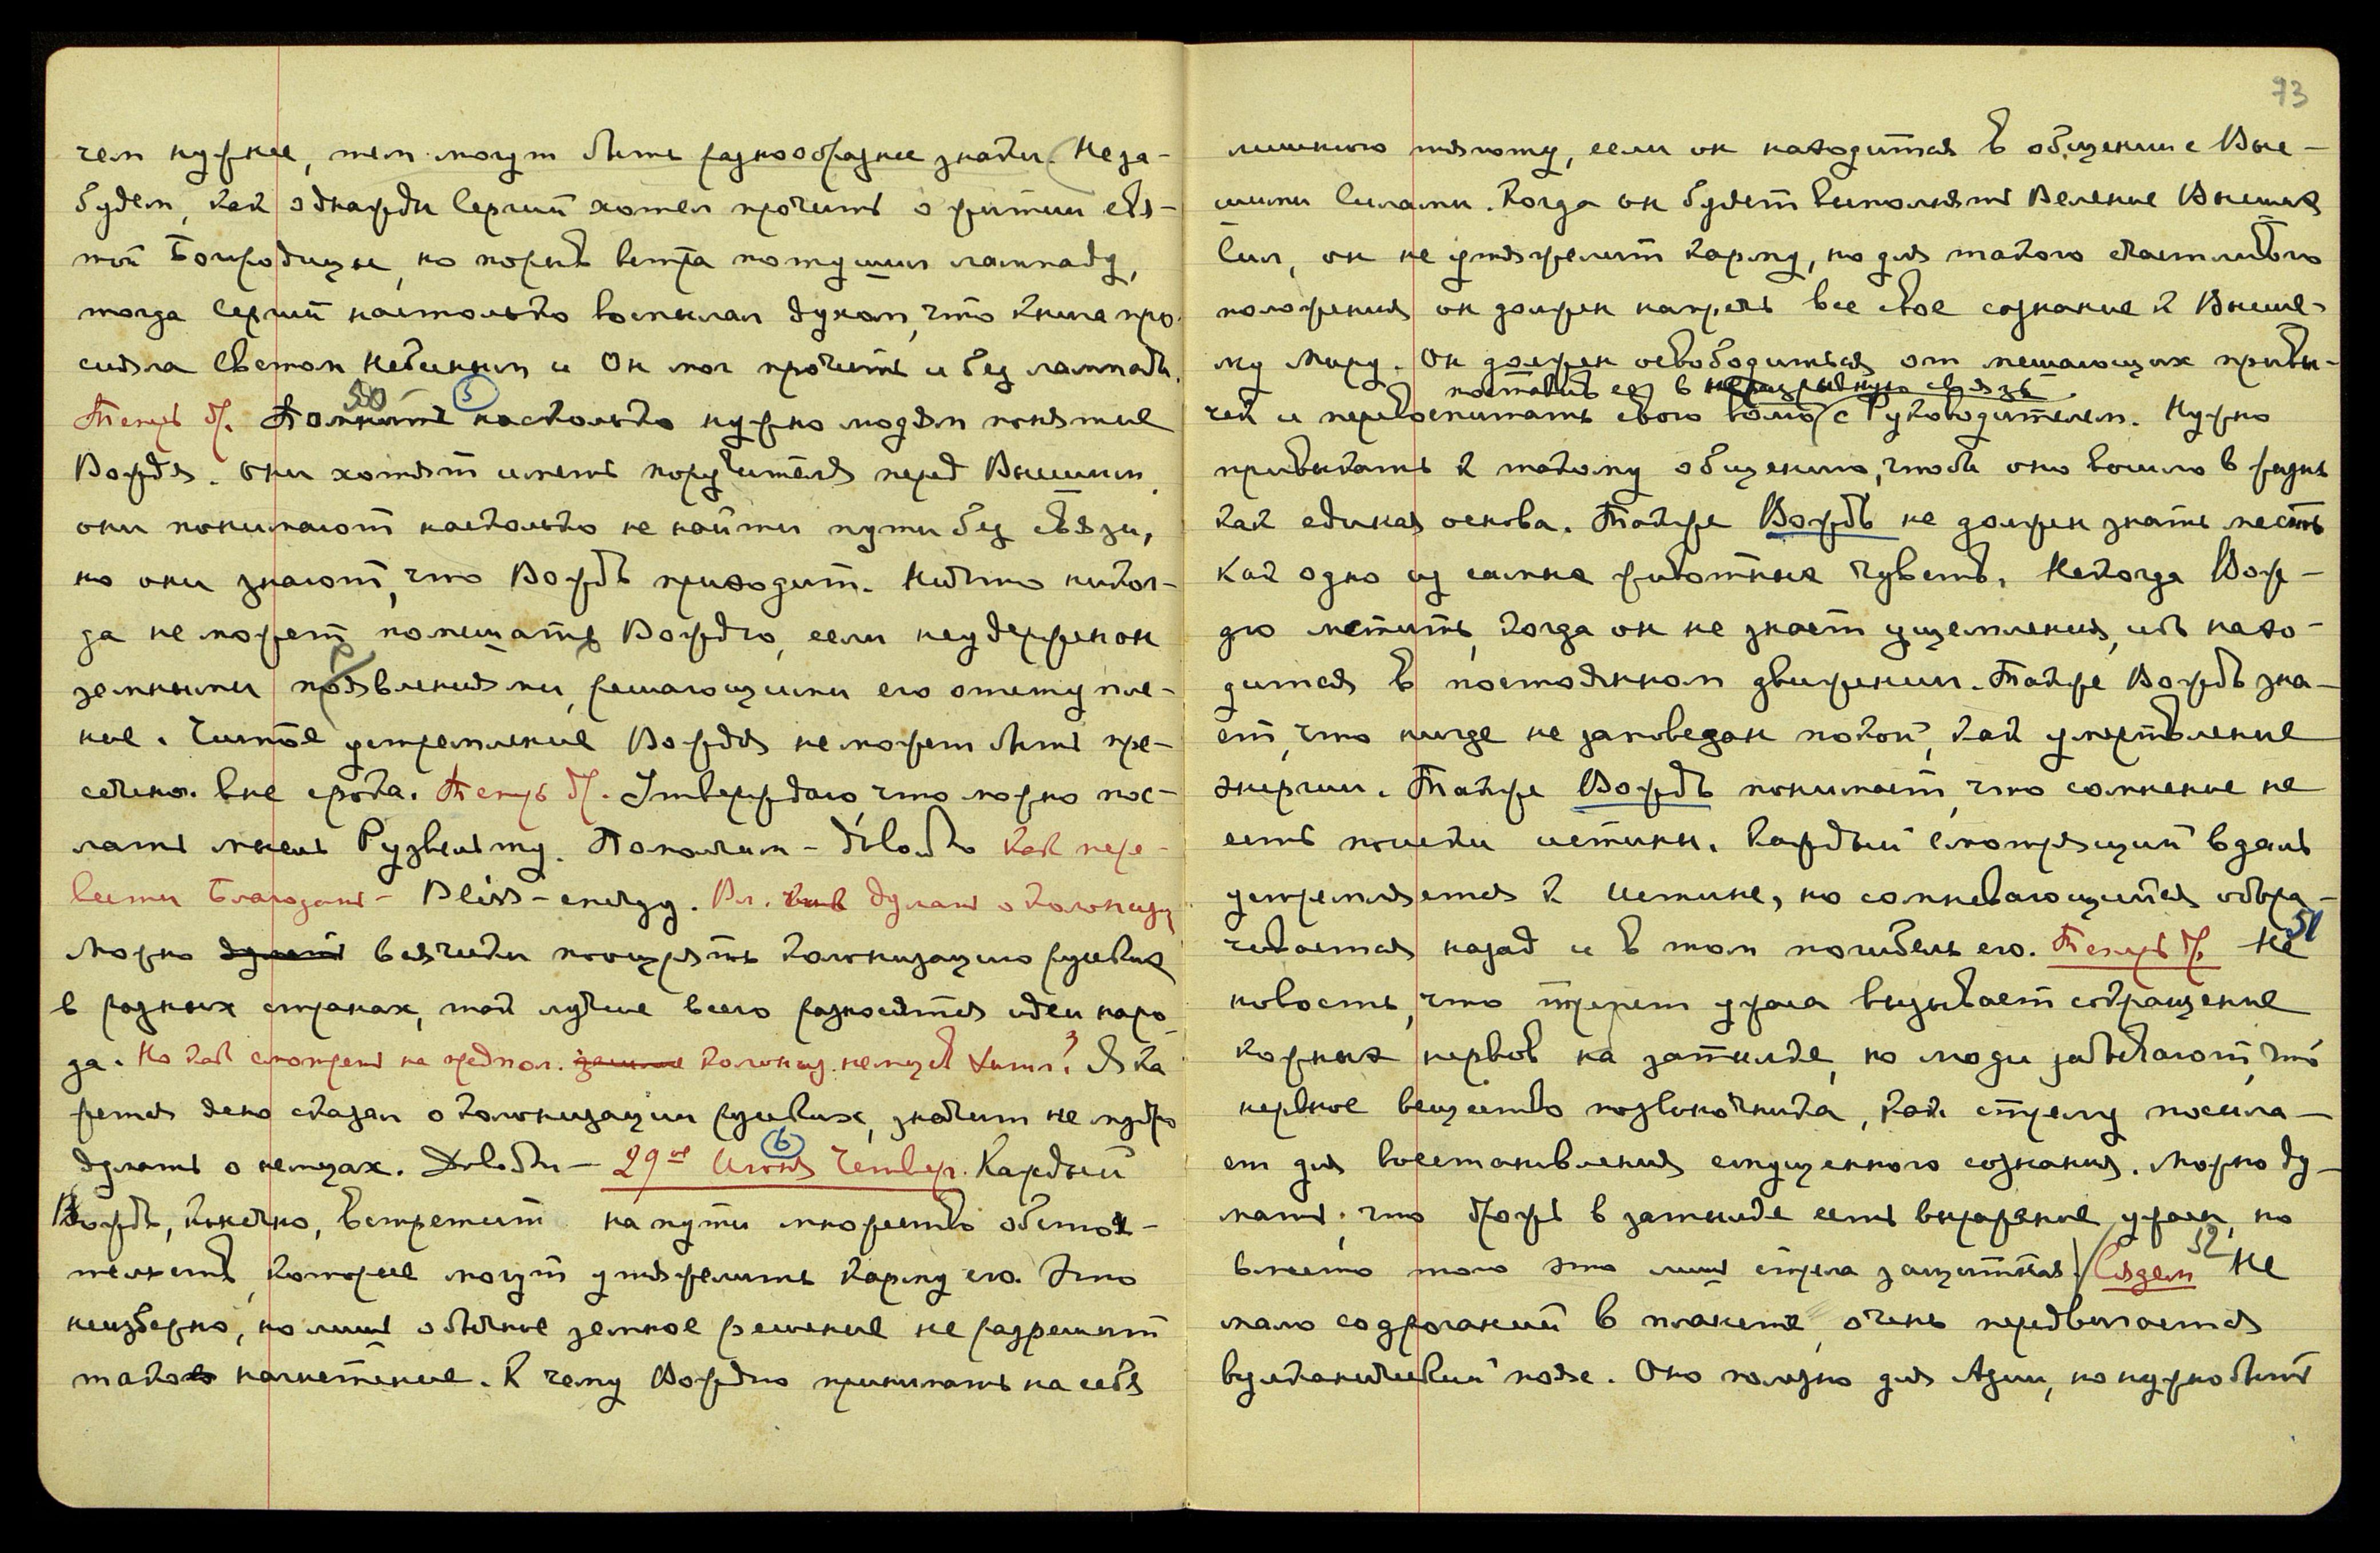 чем нужнее, тем могут быть разнообразнее знаки. Не за-
будем, как однажды Сергий хотел прочить о житии свя-
той Богородицы, но порыв ветра потушил лампаду,
тогда Сергий настолько воспылал духом, что книга про-
сияла Светом Небесным и Он мог прочить и без лампады.
50 (5)
Теперь др. Помните насколько нужно людям понятие
Вождя. Они хотят иметь поручителя перед Высшим.
они понимают насколько не найти пути без связи,
но они знают, что Вождь приходит. Ничто никог-
да не может помешать Вождю, если не удержен он
земными проявлениями, решающими его отступле-
ние. Чистое устремление Вождя не может быть пре-
сечено. вне срока. Теперь др. Утверждаю что можно пос-
лать мысль Рузвельту. Пошлем - довольно как пере-
вести Благодать - Bliss-energy. Вл. думать о колониз.
Можно думать всячески поощрять колонизацию русских
в разных странах, так лучше всего разносятся идеи наро-
да. Но как смотреть на предпол. колониз. немцев Хитл.? Я ка-
жется ясно сказал о колонизации русских, значит не нужно
думать о немцах. Довольно - 29ое Июня Четвер. (6) Каждый
Вождь, конечно, встретит на пути множество обстоя-
тельств, которые могут утяжелить карму его. Это
неизбежно, но лишь обычное земное решение не разрешит
такое нагнетение. К чему Вождю принимать на себя
73
лишнюю тяготу, если он находится в общении с Выс-
шими Силами. Когда он будет выполнять Веление Высших
Сил, он не утяжелит карму, но для такого счастливого
положения он должен напречь все свое сознание к Высше-
му Миру. Он должен освободиться от мешающих привы-
поставить ее в неразрывную связь
чек и перевоспитать свою волю с Руководителем. Нужно
привыкать к такому общению, чтобы оно вошло в жизнь
как единая основа. Также Вождь не должен знать месть
как одно из самых животных чувств. Некогда Вож-
дю мстить, когда он не знает ущемления, ибо нахо-
дится в постоянном движении. Также Вождь зна-
ет, что нигде не заповедан покой, как умертвление
энергии. Также Вождь понимает, что сомнение не
есть поиски истины. Каждый смотрящий вдаль
устремляется к Истине, но сомневающийся обора-
чивается назад и в том погибель его. Теперь др. 51 Не
новость, что трепет ужаса вызывает сокращение
кожных нервов на затылке, но люди забывают, что
нервное вещество позвоночника, как стрелу посыла-
ет для восстановления смущенного сознания. Можно ду-
мать, что дрожь в затылке есть выражение ужаса, но
вместо того это лишь стрела защитная. Сядем 52 Не
мало содроганий в планете, очень передвигается
вулканический пояс. Оно полезно для Азии, но нужно быть